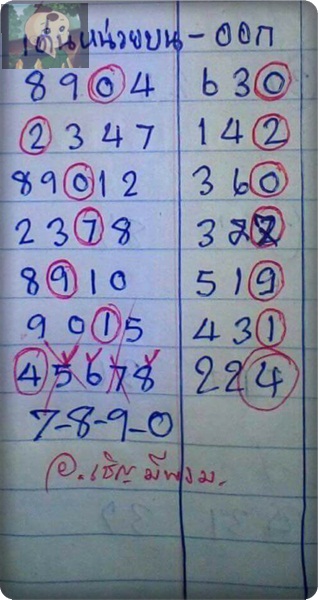 เด่นหน่วยบน - ออก
8904 630
2347 142
89012 360
2378 327
8910 519
9015 431
45678 224
7-8-9-0
อ. เชิญ มีพรม.